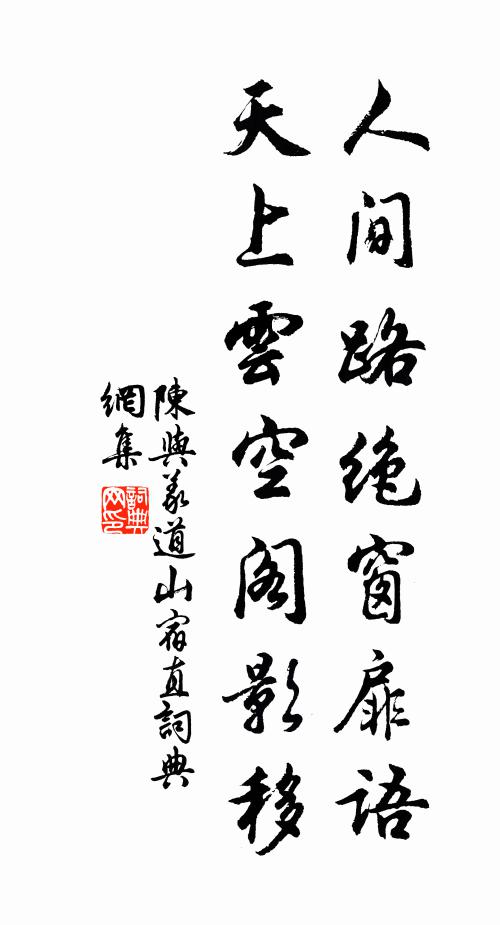 人间路绝窗扉语
天上雲空阁影移
陳與義道山宿直詞典
網集
詞典
网印